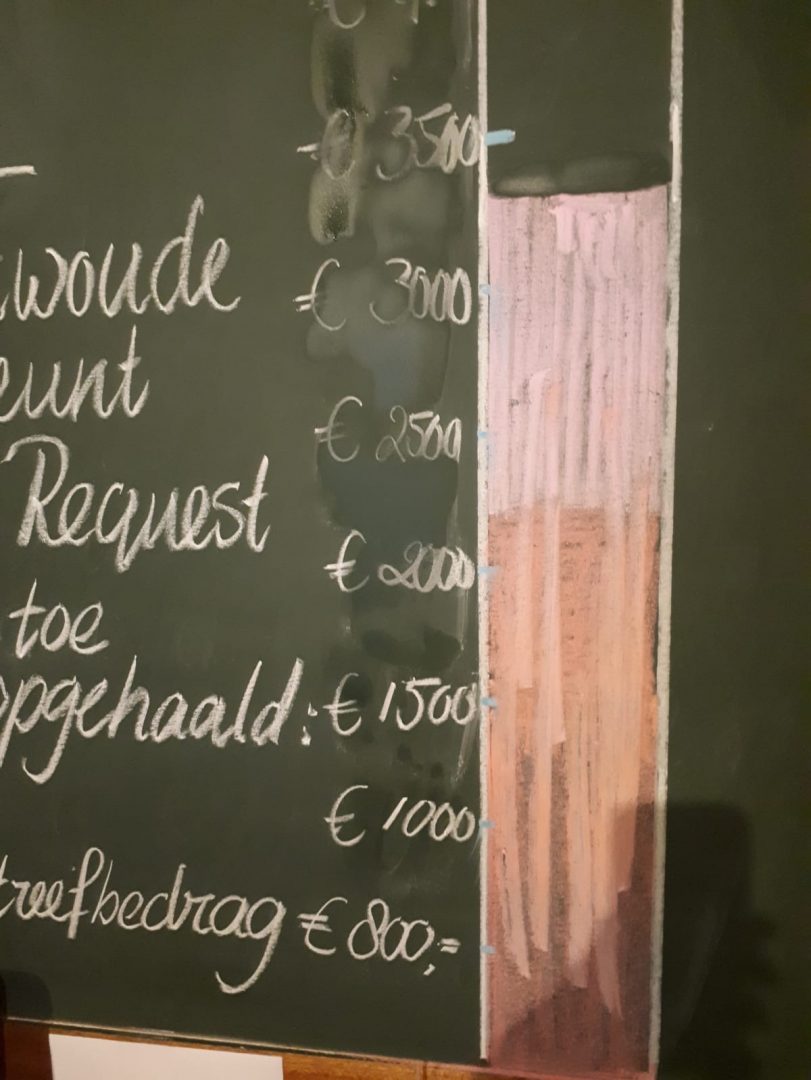 € 3500
woude
€ 3000
eunt
€ 2500
Request
€ 2000
toe
opgehaald: € 1500
€ 1000
treefbedrag € 800,=